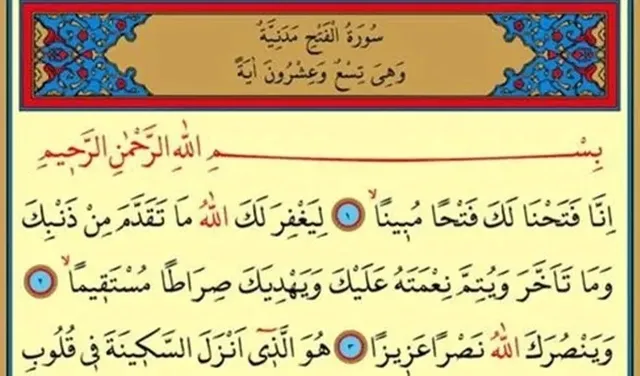 سُورَةُ الْفَتْحِ مَدَنِيَّةٌ
وَهِىَ تِسْعٌ وَعِشْرُونَ اٰيَةً
بِسْمِ اللّٰهِ الرَّحْمٰنِ الرَّحٖيمِ
اِنَّا فَتَحْنَا لَكَ فَتْحًا مُبٖينًاۙ ﴿١﴾ لِيَغْفِرَ لَكَ اللّٰهُ مَا تَقَدَّمَ مِنْ ذَنْبِكَ
وَمَا تَاَخَّرَ وَيُتِمَّ نِعْمَتَهُ عَلَيْكَ وَيَهْدِيَكَ صِرَاطًا مُسْتَقٖيمًاۙ ﴿٢﴾
وَيَنْصُرَكَ اللّٰهُ نَصْرًا عَزٖيزًا ﴿٣﴾ هُوَ الَّذٖٓى اَنْزَلَ السَّكٖينَةَ فٖى قُلُوبِ